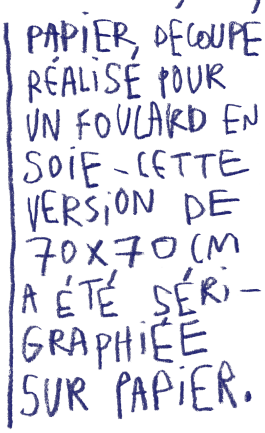 PAPIER, DÉCOUPÉ
RÉALISÉ POUR
UN FOULARD EN
SOIE - CETTE
VERSION DE
70 X 70 CM
A ÉTÉ SÉRI-
GRAPHIÉE
SUR PAPIER.